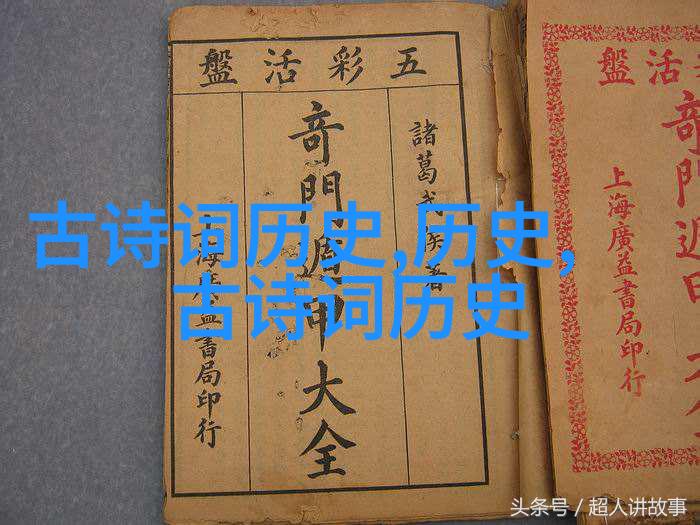 五彩活盤
諸葛武侯著
竒門遁甲大全
上海廣益書局印行
古诗词历史,历史,
古诗词历史
活盤
上海廣益書局印行
头条号 / 超人讲故事